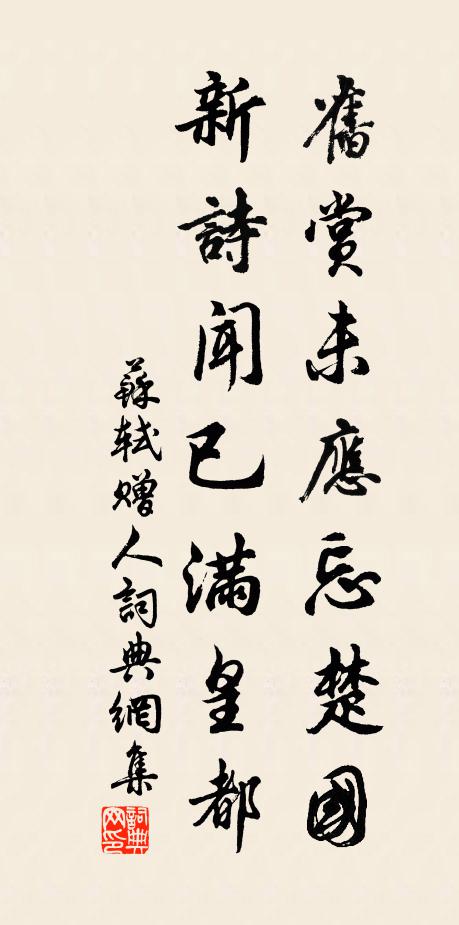 舊賞未應忘楚國
新詩聞已滿皇都
蘇軾贈人詞典網集
詞典
网印